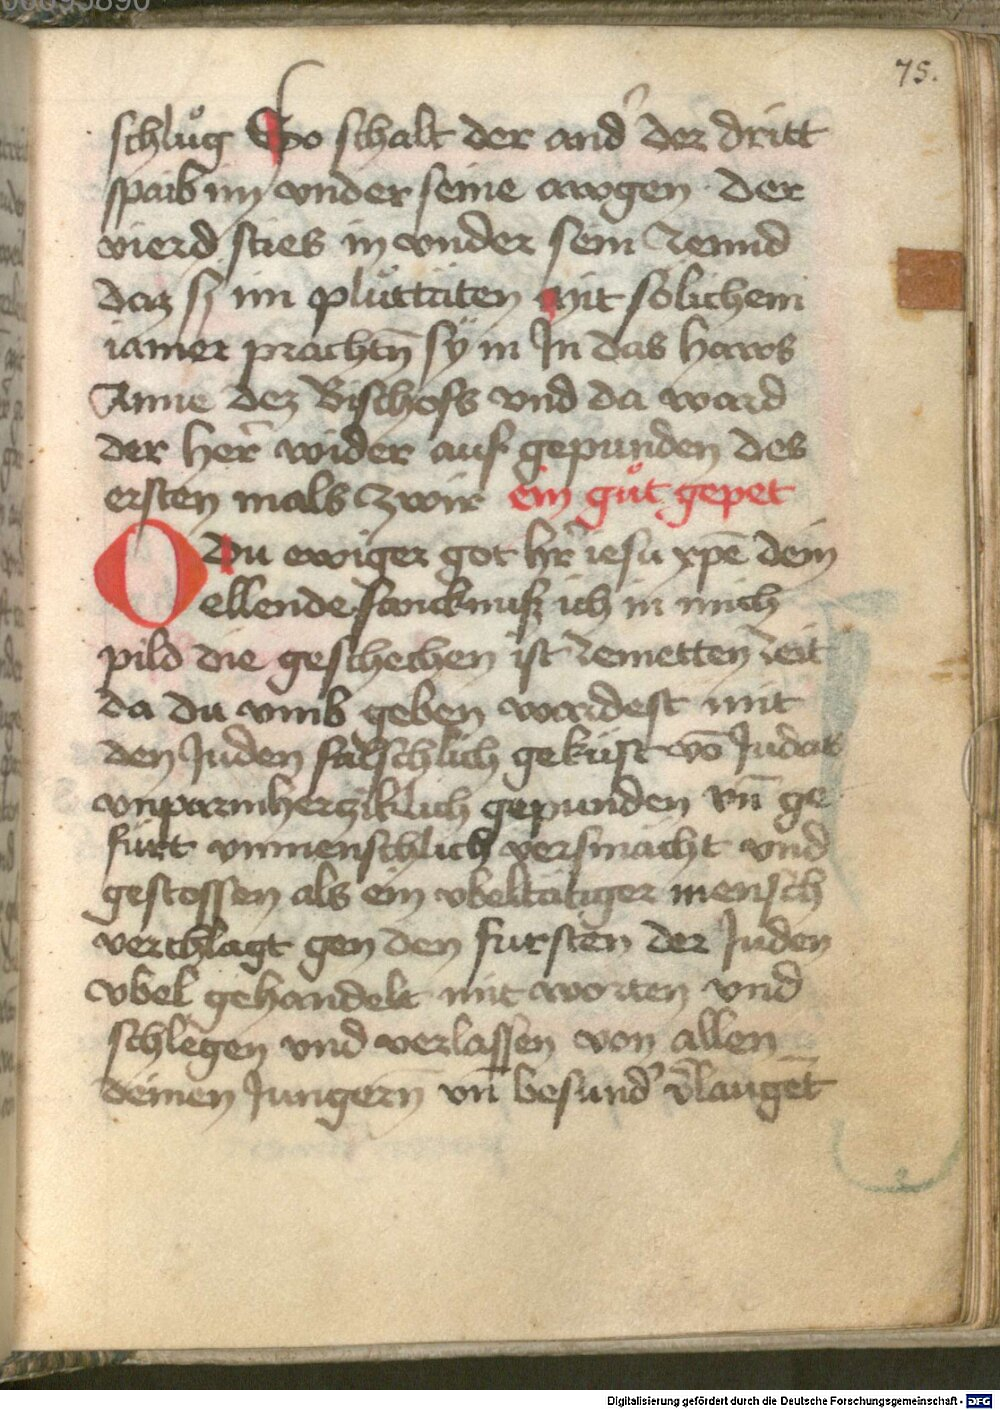 75.
schlůg So schalt der and' der dritt
spaib im vnder seine awgen der
vierd sties in vnder sein zennd
daz sy im plůttäten mit solichem
iamer prachtn̄ sÿ in In das haws
Anne dez Bischofs vnd da ward
der her̄ wider auf gepunden des
ersten mals zwir ein gůt gepet
O du ewiger got hr̄ iesu xp̄e dein
ellende fancknuß ich in mich
pild die geschechen ist zemetten zeit
da du vmb geben wardest mit
den Juden fälschlich geküst vō Judas
vnparmhercziklich gepunden vn̄ ge
fürt vnmenschlich versmächt vnd
gestossen als ein vbeltätiger mensch
verchlagt gen den fursten der Juden
vbel gehandelt mit worten vnd
schlegen vnd verlassen von allen
deinen Jungern̄ vn̄ besund' v̄laugēt
Digitalisierung gefördert durch die Deutsche Forschungsgemeinschaft - DFG